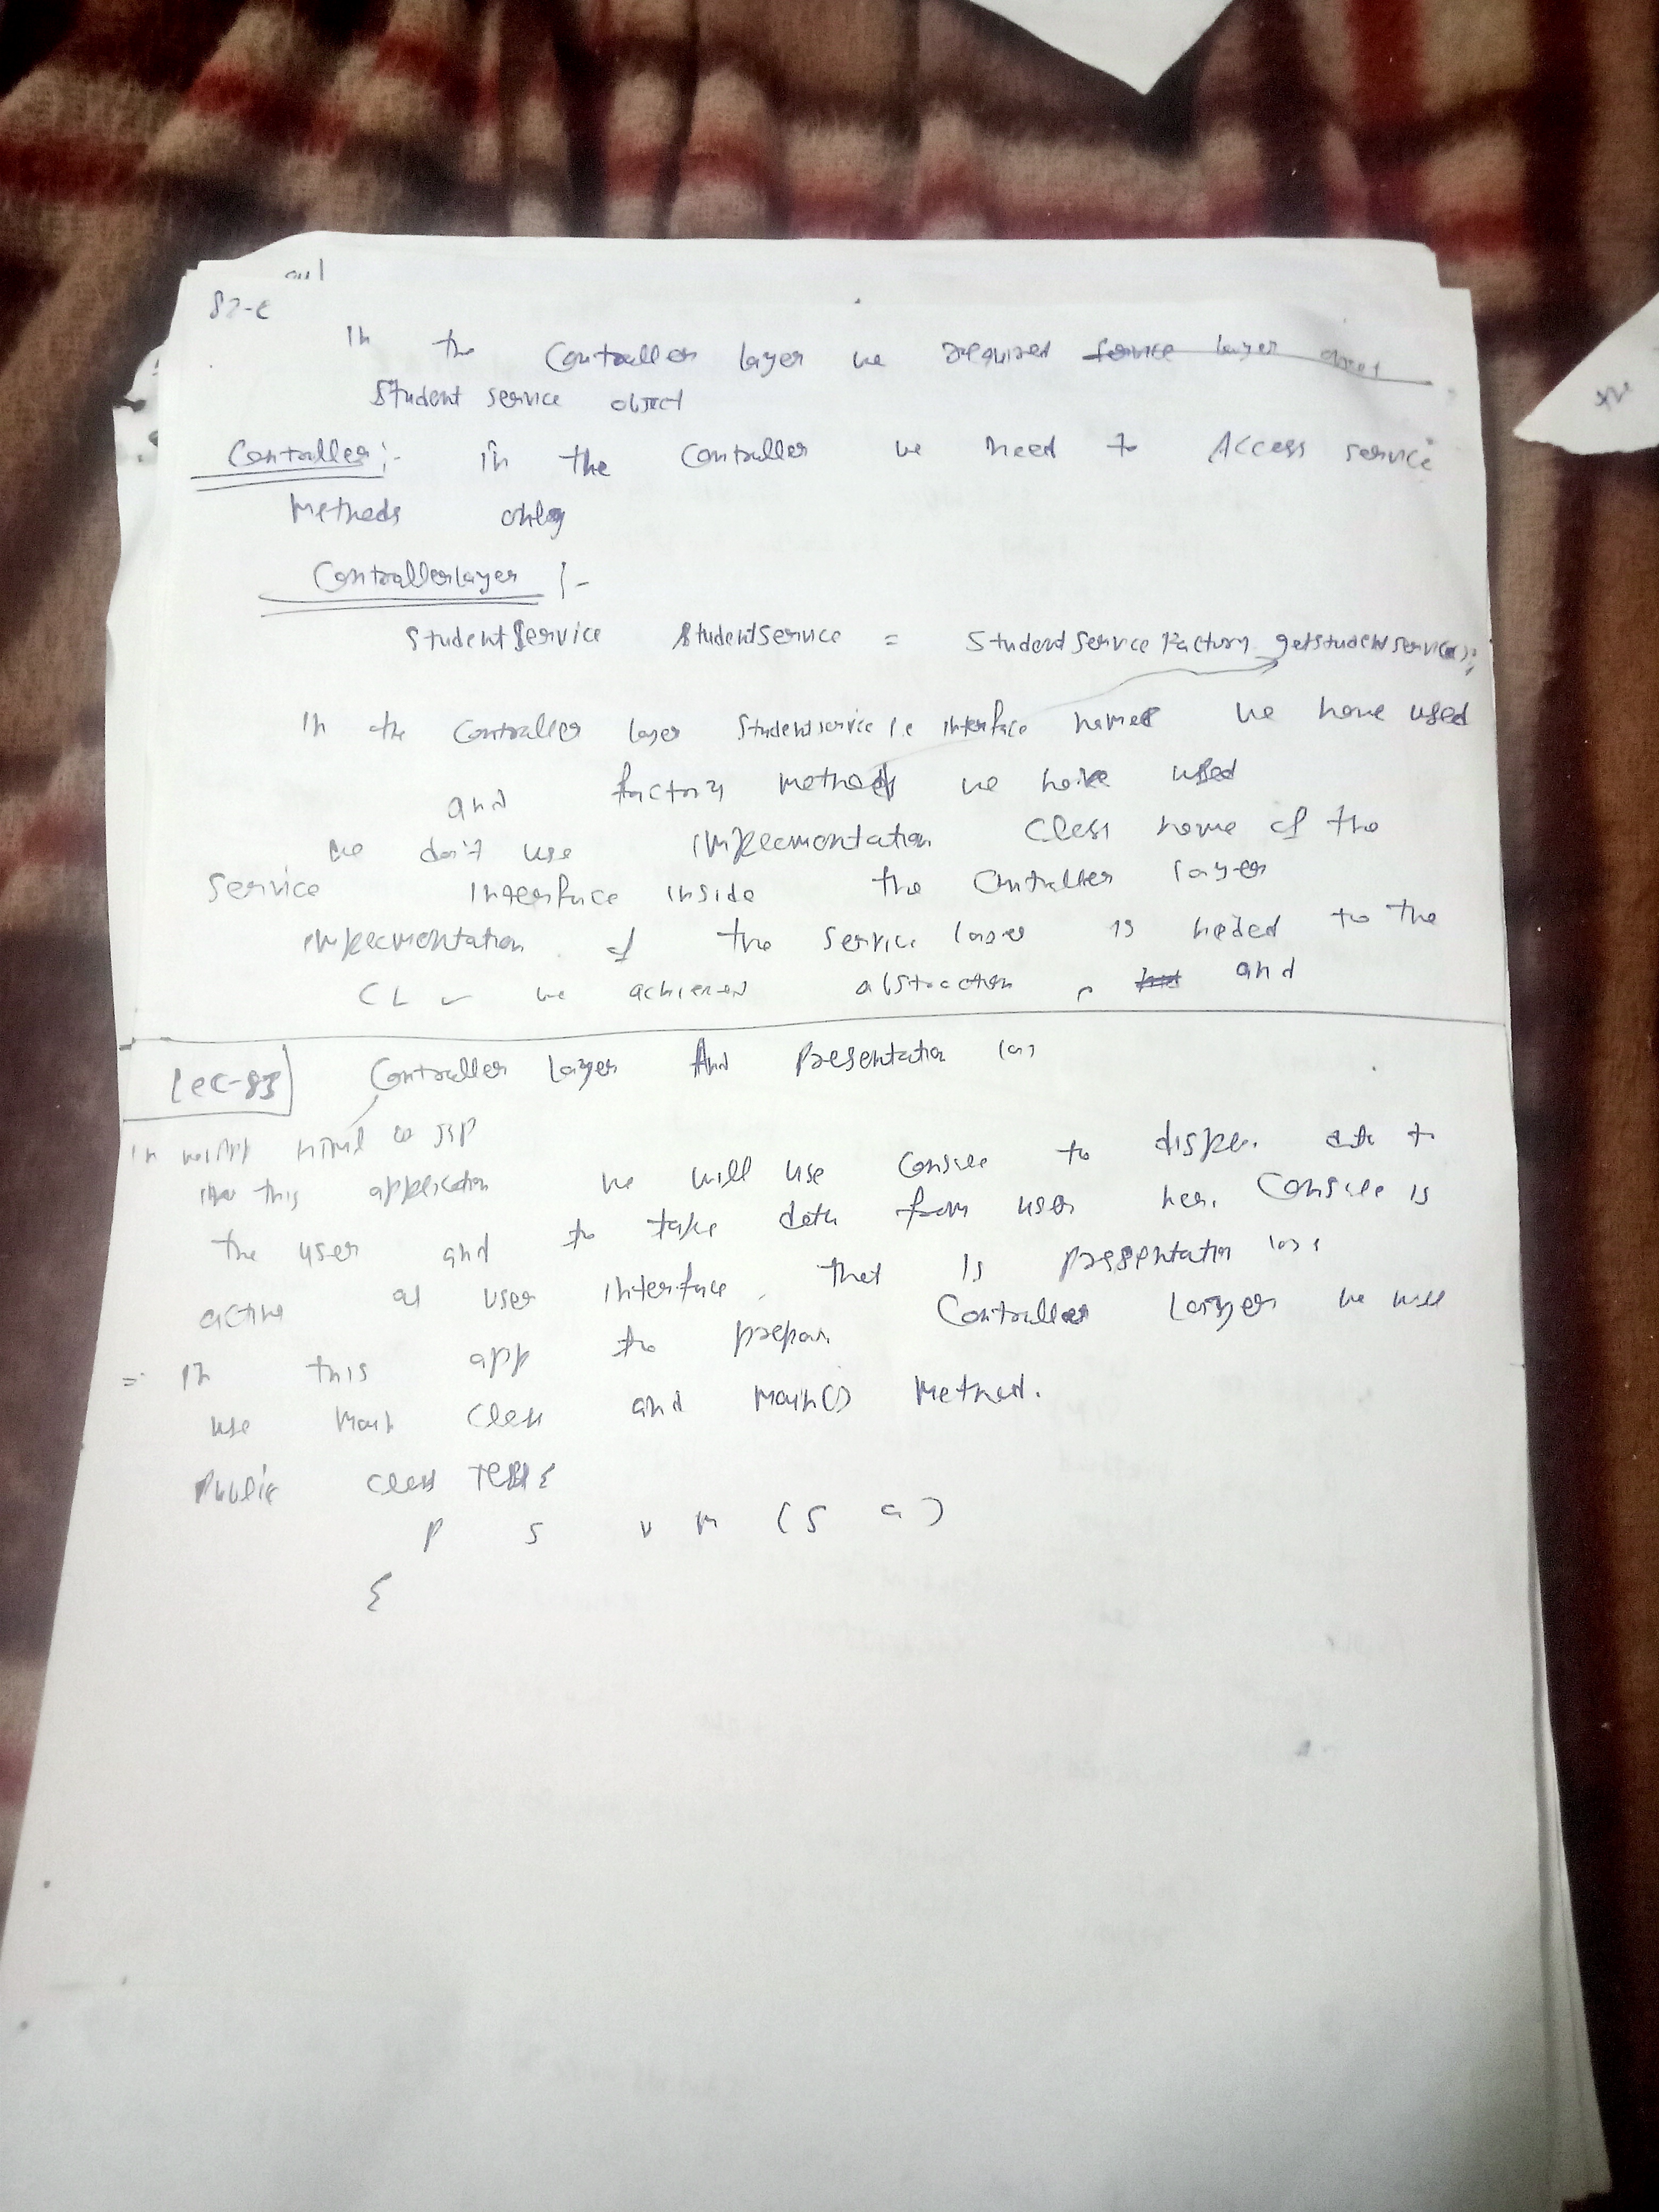 82-C
In the Controller layer we required service layer object
Student service object
Controller :- in the Controller we need to Access service
Methods only
Controllerlayer :-
StudentService StudentService = StudentServiceFactory.getStudentService();
In the Controller layer Studentservice i.e interface name we have used
and factory method we have used
we don't use implementation class name of the
Service interface inside the Controller layer
implementation of the service layer is hided to the
CL we achieved abstraction, and
Lec-83 Controller Layer And Presentation lay
In html or JSP
this application we will use Console to display data to
the user and to take data from user her. Console is
acting as user interface. that is presentation lay
= In this app to prepare Controller Layer we will
use Main class and Main() Method.
Public class Test {
P S V M (S a)
{